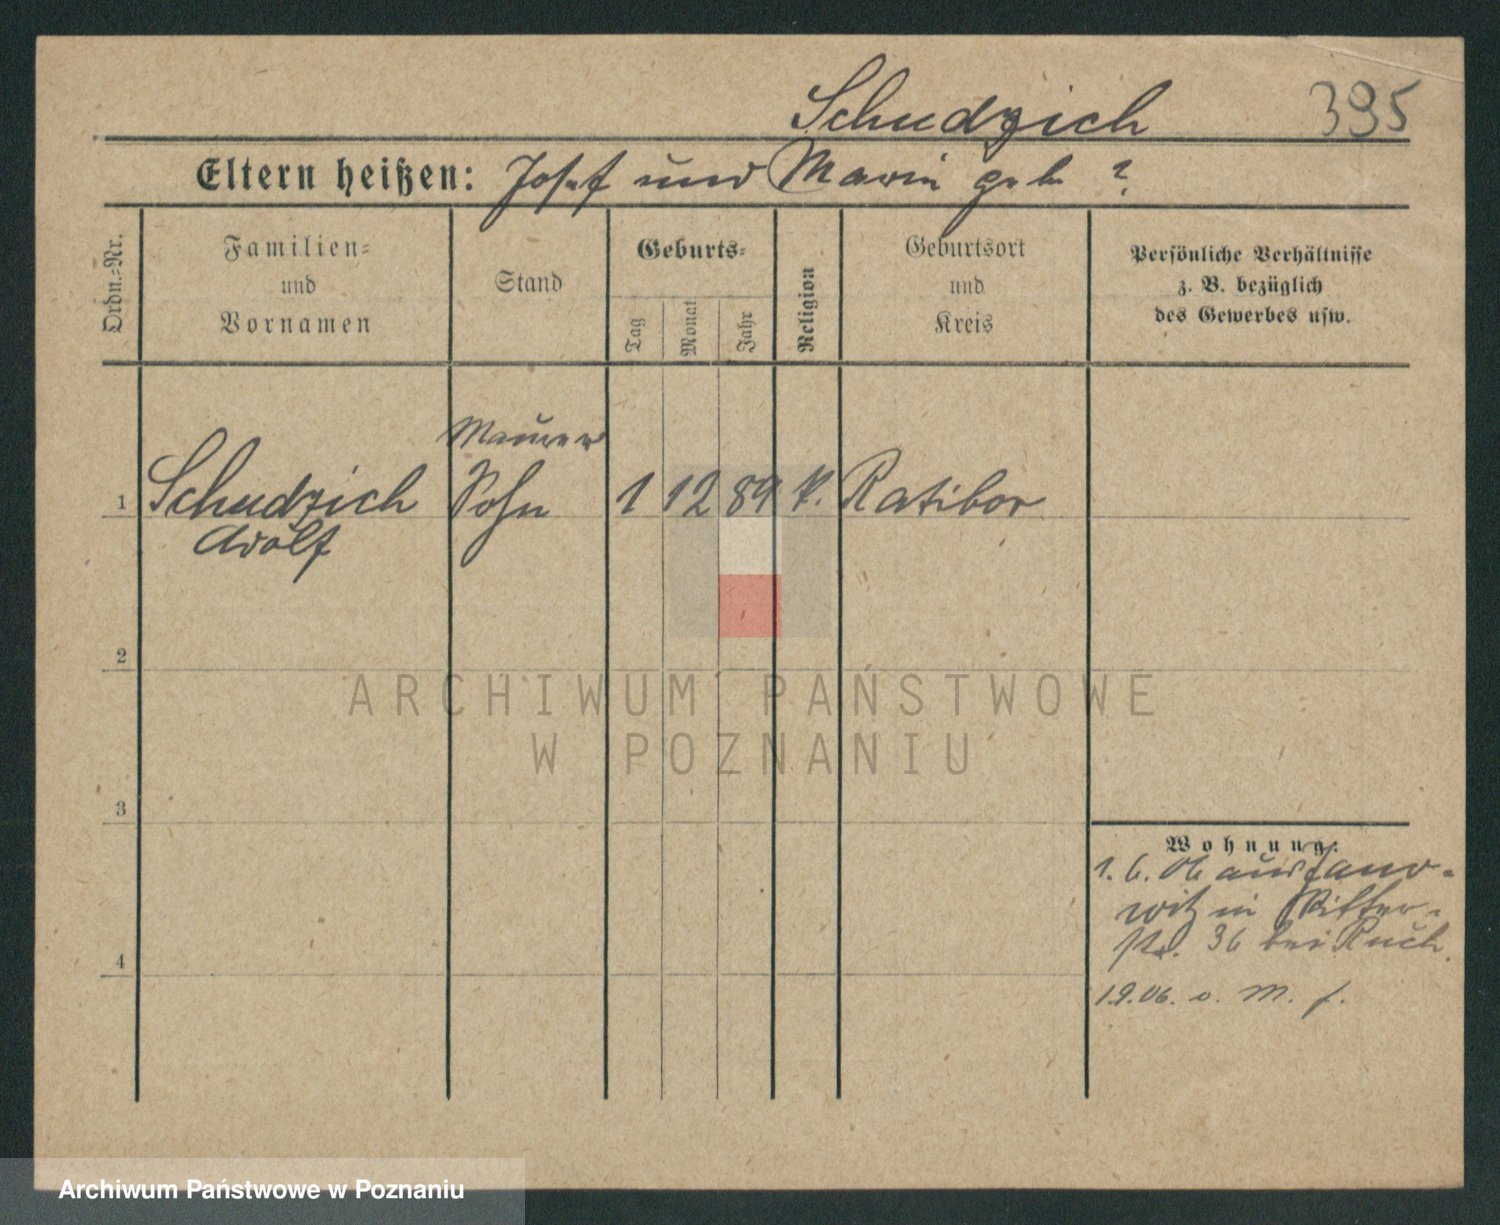 Schudzich
395
Eltern heißen: Josef und Marie geb. ?
Ordn.=Nr.
Familien=
und
Vornamen
Stand
Geburts=
Tag
Monat
Jahr
Religion
Geburtsort
und
Kreis
Persönliche Verhältnisse
z. B. bezüglich
des Gewerbes usw.
Maurer
1 Schudzich Sohn 1 12 89 k. Ratibor
Adolf
2
3
4
Wohnung:
1. 6. 06 aus Jano-
witz in Ritter-
str. 36 bei Ruch.
1.9.06. o. M. f.
ARCHIWUM PAŃSTWOWE
W POZNANIU
Archiwum Państwowe w Poznaniu